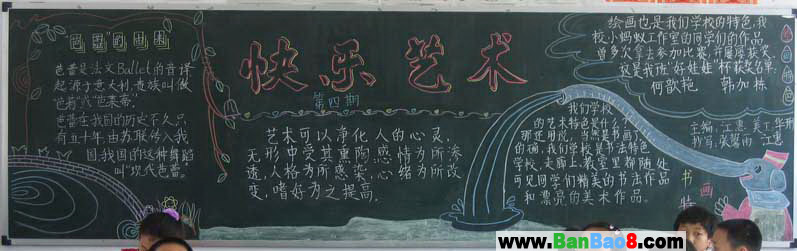 芭蕾的由来
芭蕾是法文Ballet的音译
起源于意大利,贵族叫做
芭蕾在我国的历史不久,只
有五十年,由苏联传入我
国,我国的这种舞蹈
叫"现代芭蕾。
快乐艺术
第四期
艺术可以净化人的心灵,
无形中受其熏陶,感情为所渗
透,人格为所感染,心绪为所改
变,嗜好为之提高。
绘画也是我们学校的特色,我
校小蚂蚁工作室的同学们的作品,
曾多次拿去参加比赛,并屡屡获奖
这是我班"好娃娃"杯获奖名单:
何歆艳 韩加栋
我们学校
的艺术特色是什么?
那还用说,当然是书画了
的确,我们学校是书法特色
学校,走廊上,教室里都随处
可见同学们精美的书法作品
和漂亮的美术作品。
主编:江惠 美工:华荆
书写:张馨雨 江惠
书
画
特
www.BanBao8.com